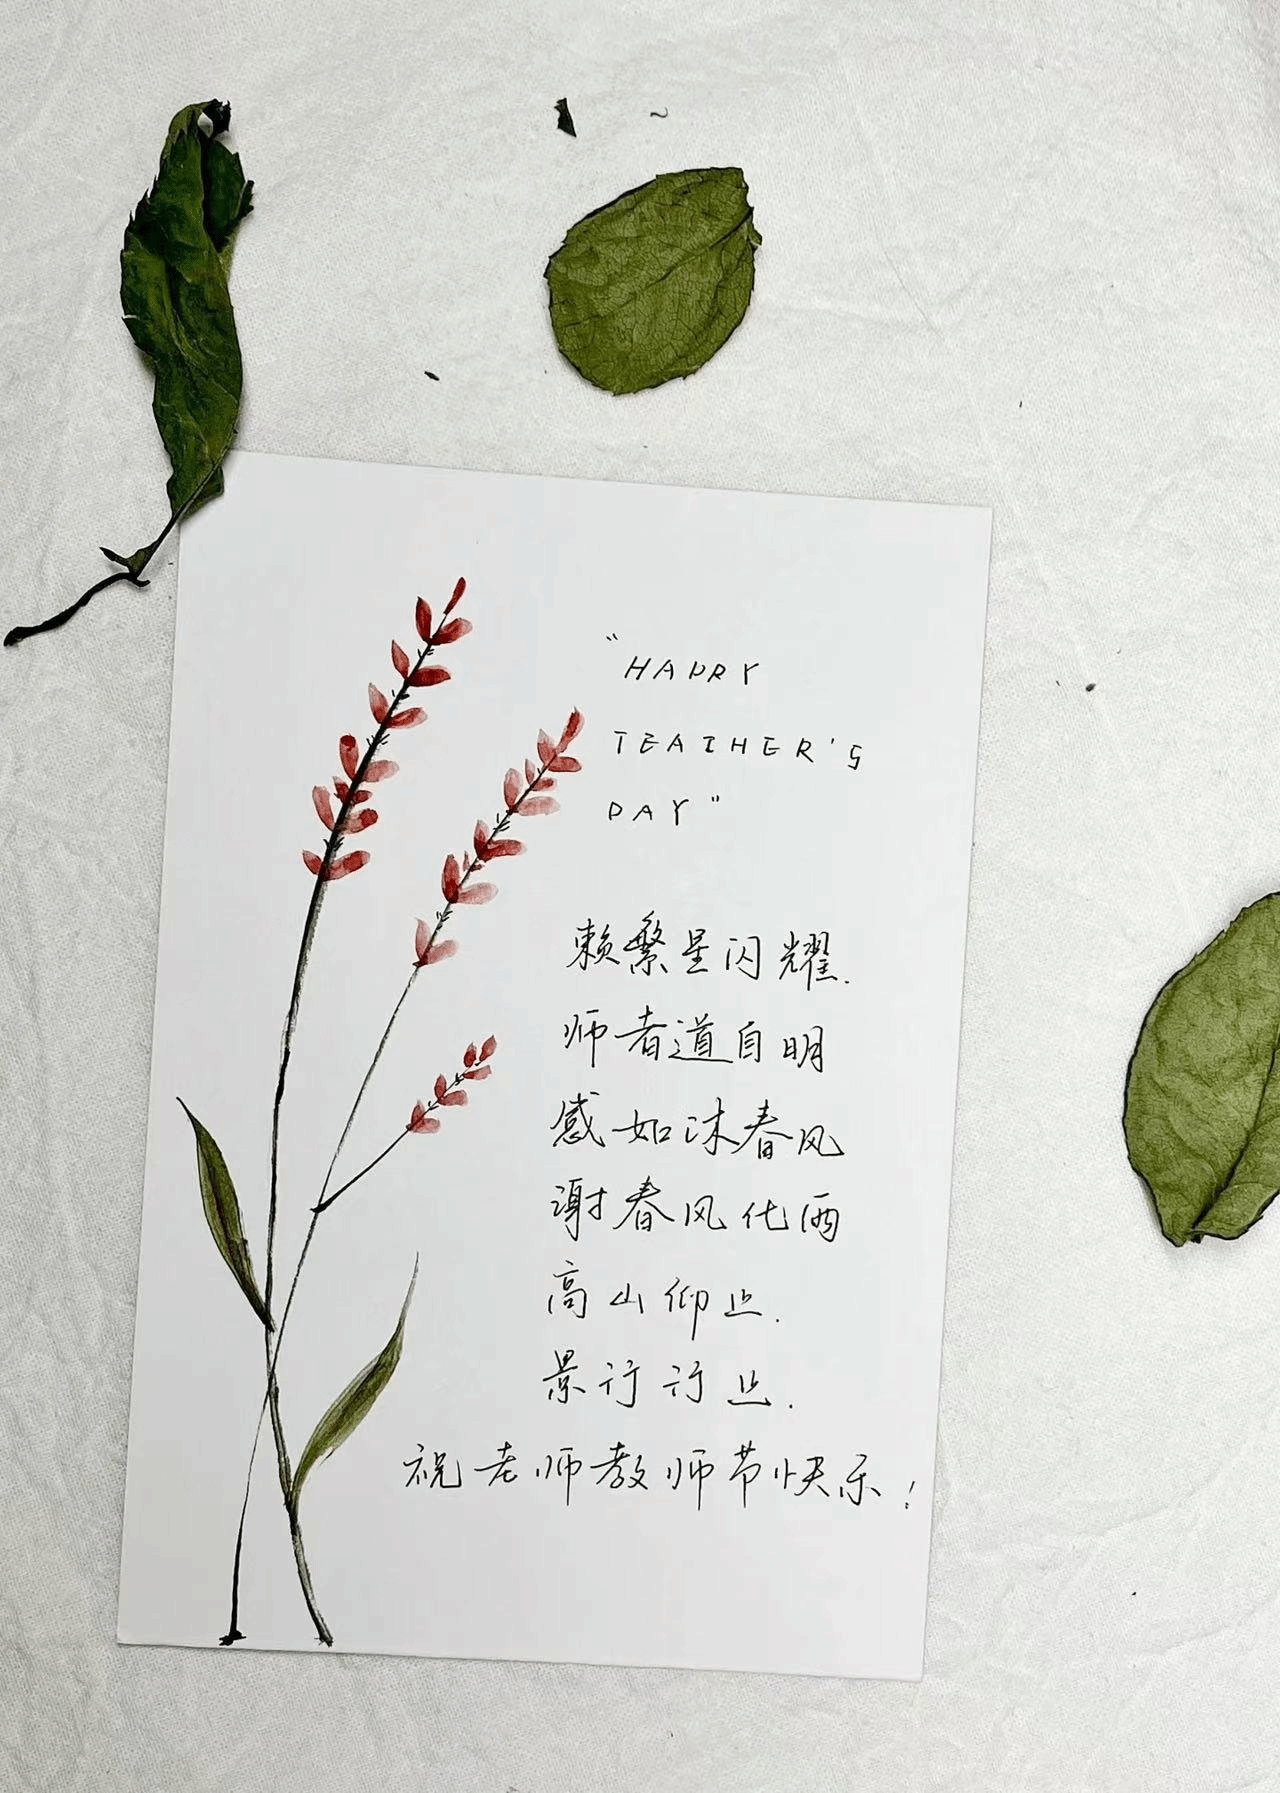 "HAPPY
TEACHER'S
DAY"
赖繁星闪耀.
师者道自明
感如沐春风
谢春风化雨
高山仰止.
景行行止.
祝老师教师节快乐!